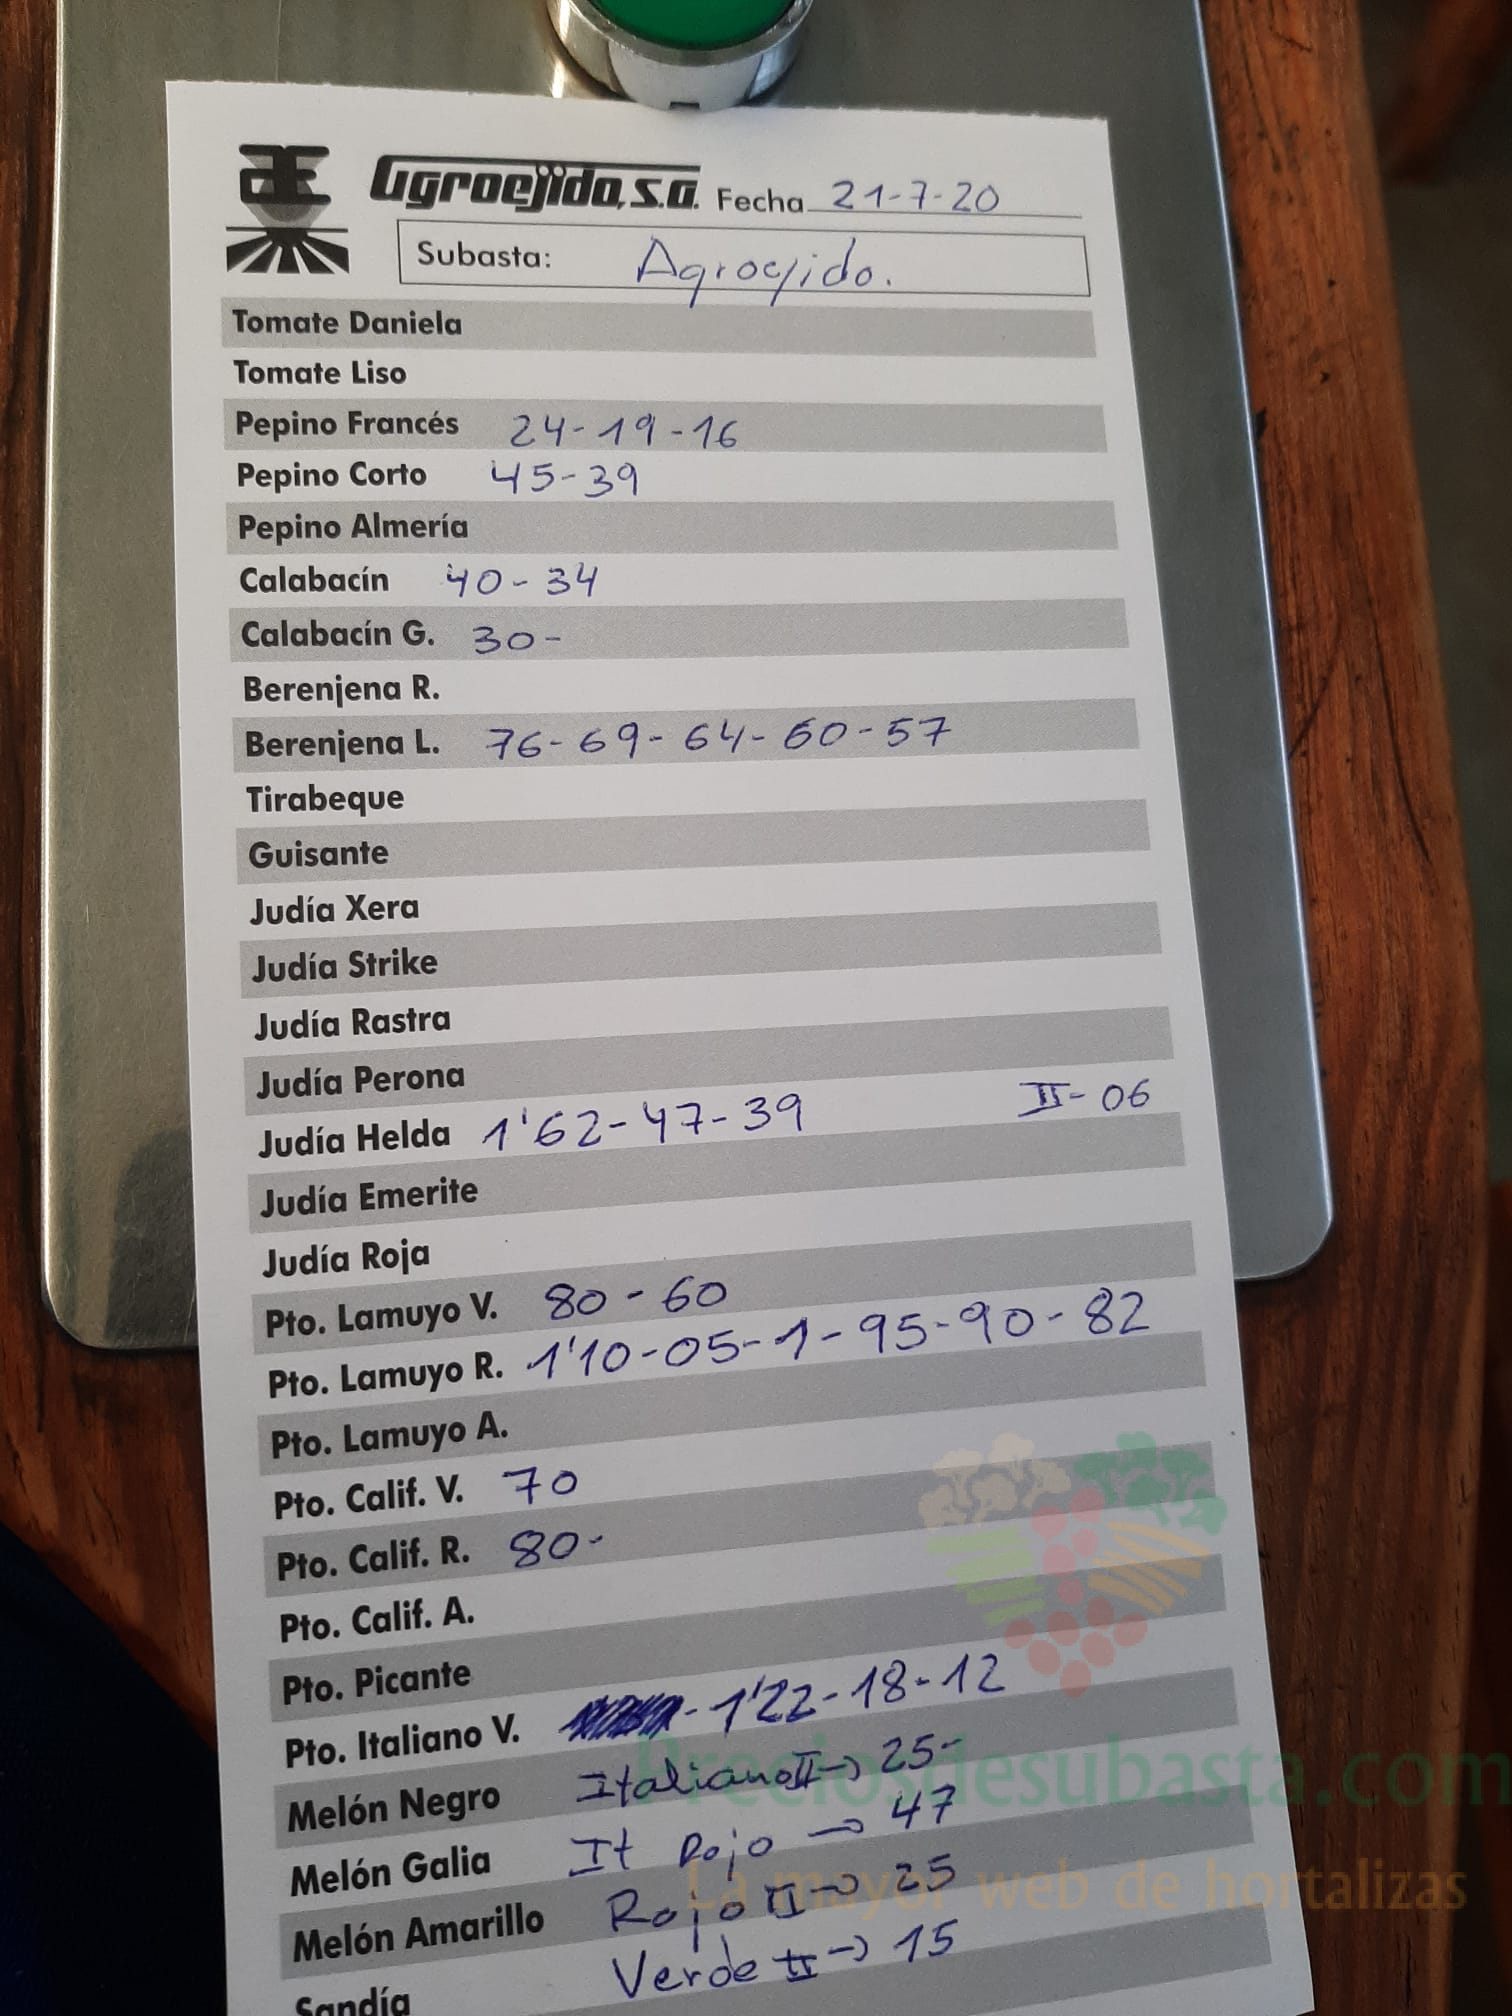 Agroejido, S.A. Fecha 21-7-20
Subasta: Agroejido.
Tomate Daniela
Tomate Liso
Pepino Francés 24-19-16
Pepino Corto 45-39
Pepino Almería
Calabacín 40-34
Calabacín G. 30-
Berenjena R.
Berenjena L. 76-69-64-60-57
Tirabeque
Guisante
Judía Xera
Judía Strike
Judía Rastra
Judía Perona
Judía Helda 1'62-47-39 II-06
Judía Emerite
Judía Roja
Pto. Lamuyo V. 80-60
Pto. Lamuyo R. 1'10-05-1-95-90-82
Pto. Lamuyo A.
Pto. Calif. V. 70
Pto. Calif. R. 80-
Pto. Calif. A.
Pto. Picante
Pto. Italiano V. -1'22-18-12
Melón Negro Italiano II→ 25-
Melón Galia It Rojo → 47
Melón Amarillo Rojo II→ 25
Sandía Verde II→ 15
Preciosdesubasta.com
La mayor web de hortalizas